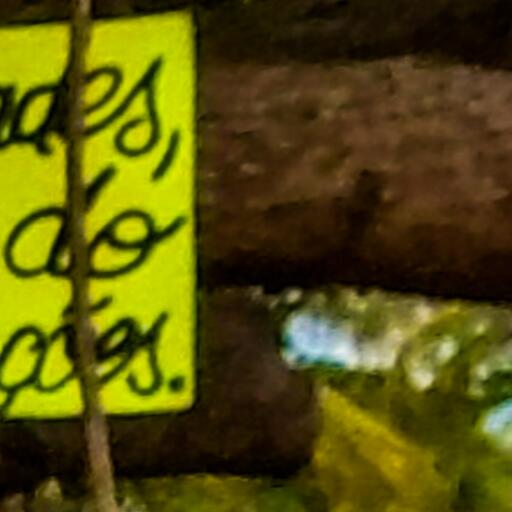 ades,
do
ções.